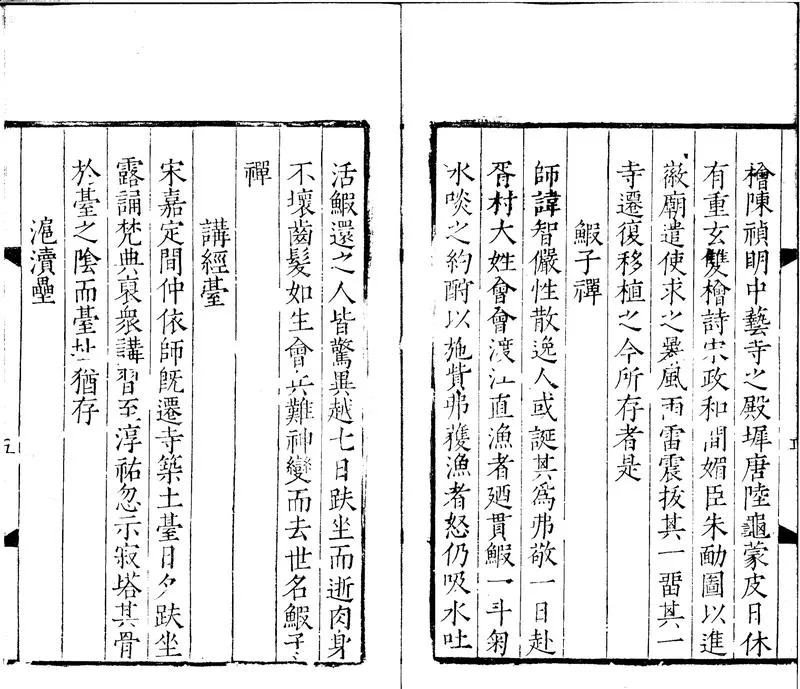 檜陳禎明中藝寺之殿墀唐陸龜蒙皮日休
有重玄雙檜詩宋政和間媚臣朱勔圖以進
徽廟遣使求之暴風雨雷震拔其一畱其一
寺遷復移植之今所存者是
鰕子禪
師諱智儼性散逸人或誕其爲弗敬一日赴
胥村大姓會會渡江直漁者廼貫鰕一斗匊
水啖之約酧以施貲弗獲漁者怒仍吸水吐
活鰕還之人皆驚異越七日趺坐而逝肉身
不壞齒髮如生會兵難神變而去世名鰕子
禪
講經臺
宋嘉定間仲依師旣遷寺築土臺日夕趺坐
露誦梵典裒衆講習至淳祐忽示寂塔其骨
於臺之陰而臺址猶存
滬瀆壘
五